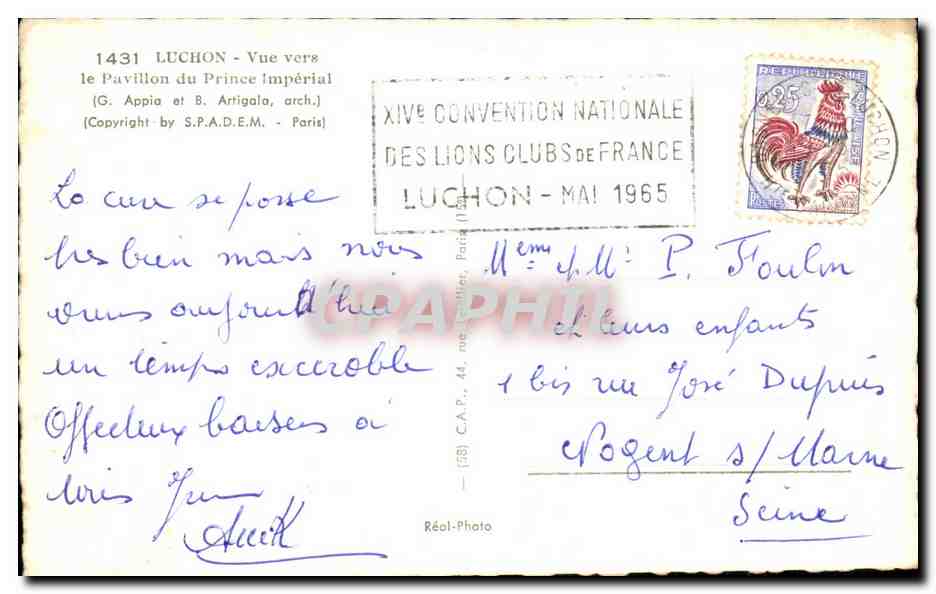 1431 LUCHON - Vue vers
le Pavillon du Prince Impérial
(G. Appia et B. Artigala, arch.)
(Copyright by S.P.A.D.E.M. - Paris)
XIVe CONVENTION NATIONALE
DES LIONS CLUBS DE FRANCE
LUCHON - MAI 1965
0,25
POSTES
LUCHON
La cure se passe
très bien mais nous
avons aujourd'hui
un temps exécrable
Affectueux baisers à
tous
Anick
Meme et Mr P. Foulon
et leurs enfants
1 bis rue José Dupuis
Nogent s/ Marne
Seine
(58) C.A.P., 44, rue
Paris
Réol-Photo
CPAPHIL